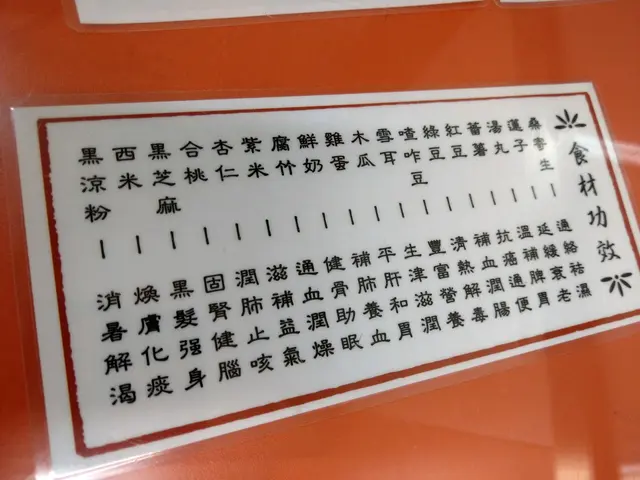 食材功效
桑寄生｜通絡祛濕
蓮子｜延緩衰老
湯丸｜溫補脾胃
蕃薯｜抗癌通便
紅豆｜補血潤腸
綠豆｜清熱解毒
喳咋豆｜豐富營養
雪耳｜生津滋潤
木瓜｜平肝和胃
雞蛋｜補肺養血
鮮奶｜健骨助眠
腐竹｜通血潤燥
紫米｜滋補益氣
杏仁｜潤肺止咳
合桃｜固腎健腦
黑芝麻｜黑髮强身
西米｜煥膚化痰
黑涼粉｜消暑解渴